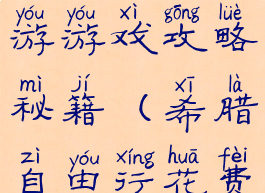 yóu yóu xì gōng lüè
游游戏攻略
mì jí xī là
秘籍(希腊
zì yóu xíng huā fèi
自由行花费